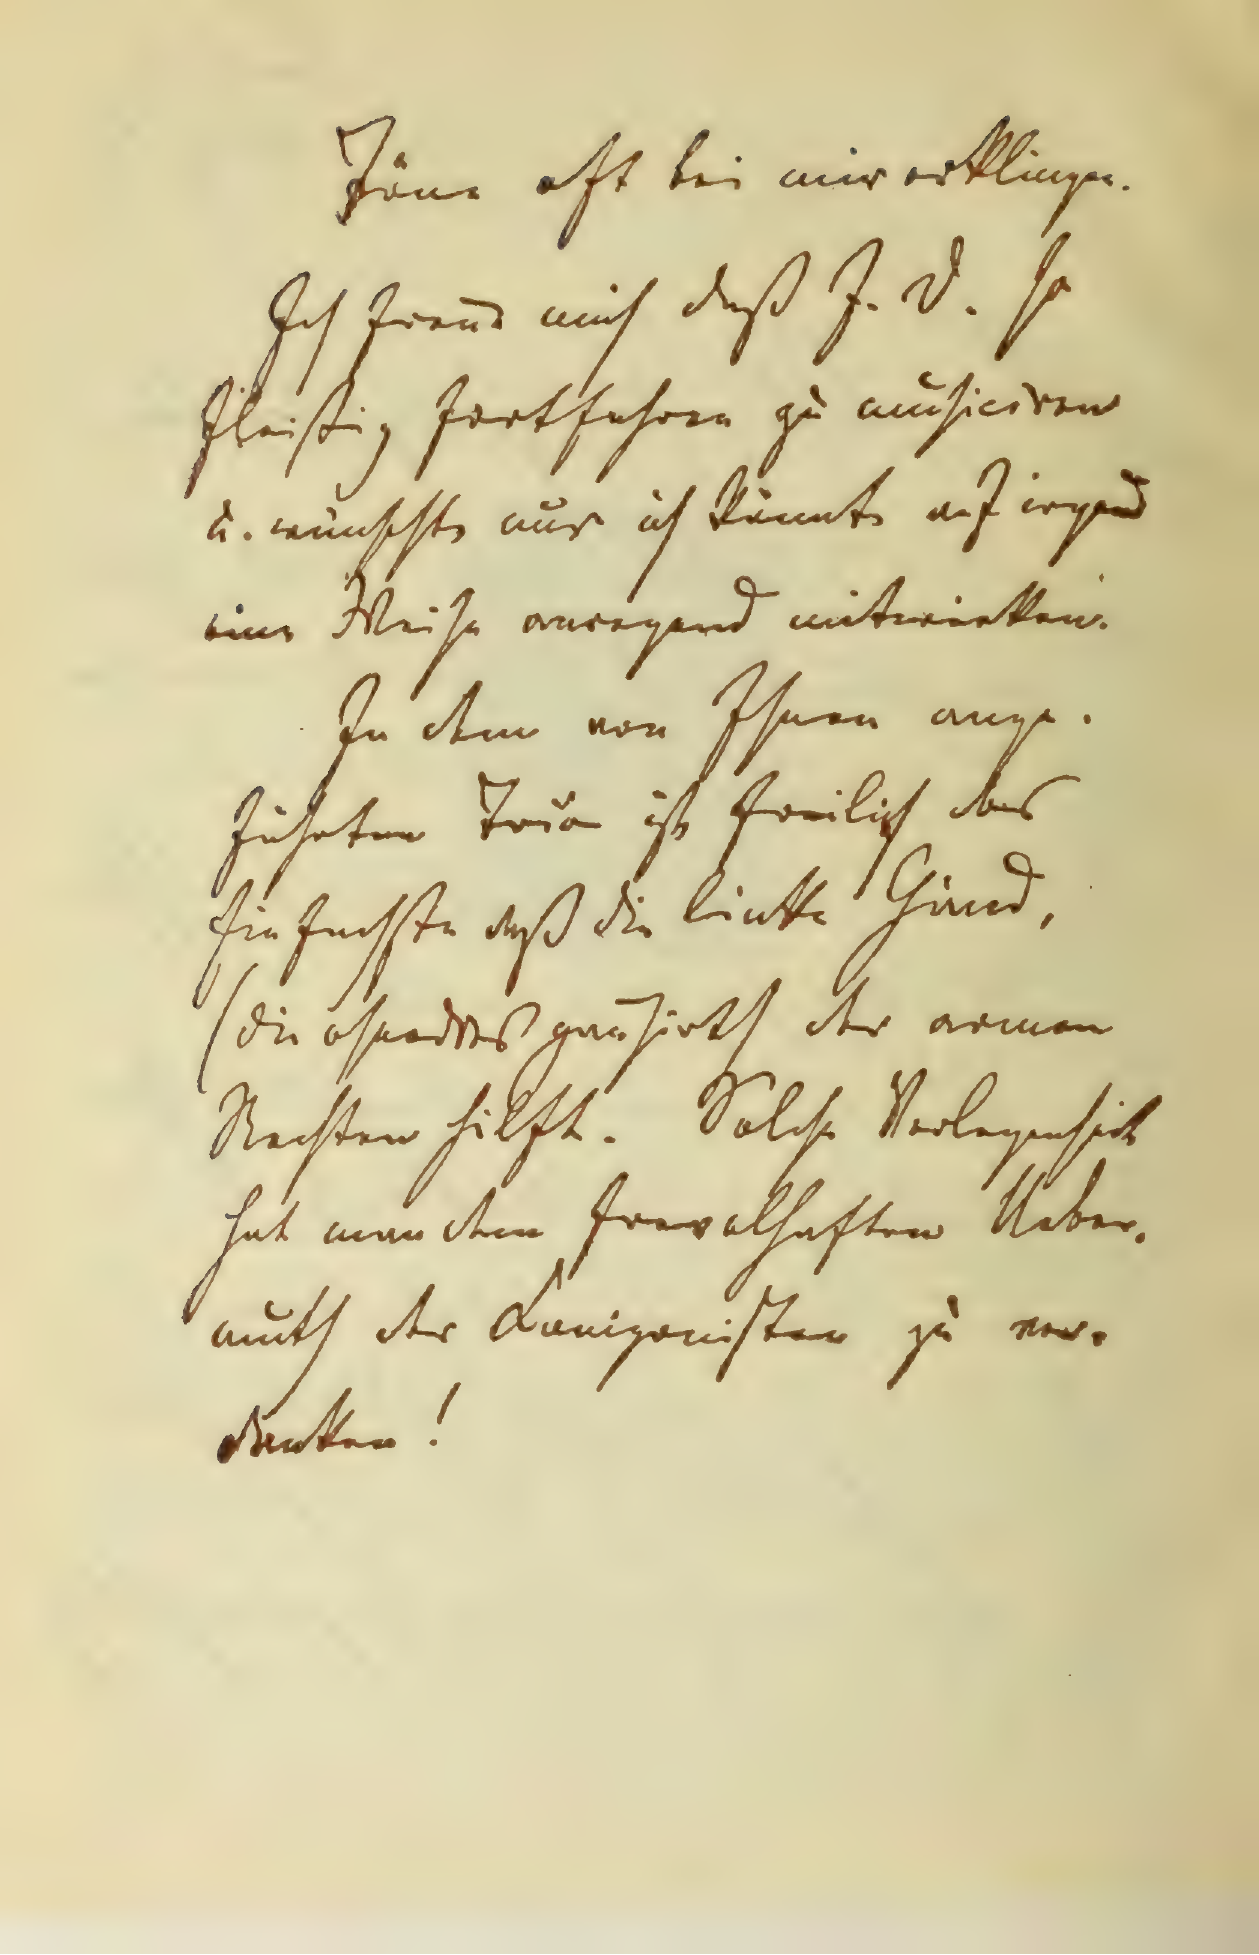 Töne oft bei mir erklingen.
Ich freue mich daß J. D. so
fleißig fortfahren zu musiciren
u. wünschte nur ich könnte auf irgend
eine Weise anregend mitwirken.
In dem von Ihnen ange-
führten Trio ist freilich das
Einfachste daß die linke Hand,
(die ohnedies pausirt) der armen
Rechten hilft. Solche Verlegenheit
hat man dem frevelhaften Ueber-
muth der Componisten zu ver-
danken!